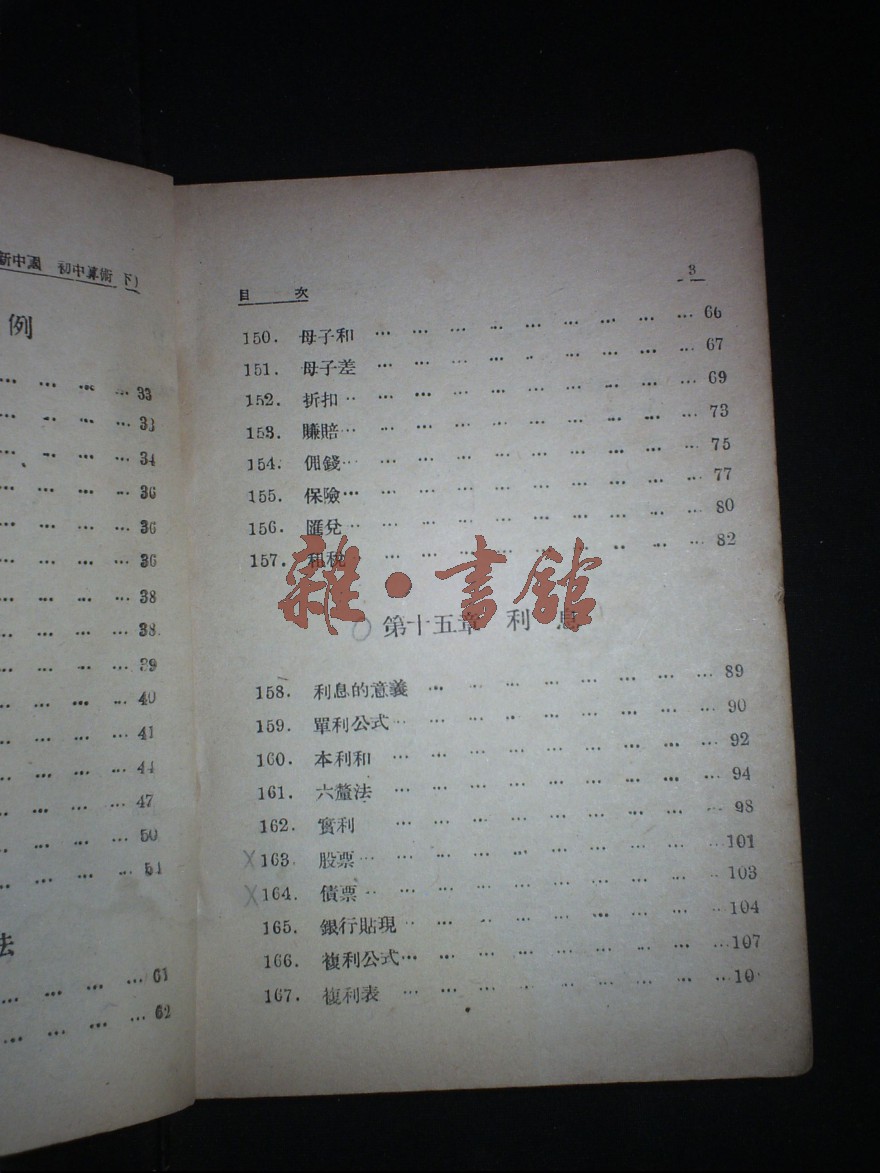 新中國 初中算術 下)
例
… … … … 33
… … … … 33
… … … … 34
… … … … 36
… … … … 36
… … … … 36
… … … … 38
… … … … 38
… … … … 39
… … … … 40
… … … … 41
… … … … 44
… … … … 47
… … … … 50
… … … … 51
法
… … … … 61
… … … … 62
目 次 3
150. 母子和 … … … … … … … … … 66
151. 母子差 … … … … … … … … … 67
152. 折扣 … … … … … … … … … 69
153. 賺賠 … … … … … … … … … 73
154. 佣錢 … … … … … … … … … 75
155. 保險 … … … … … … … … … 77
156. 匯兌 … … … … … … … … … 80
157. 租稅 … … … … … … … … … 82
雜·書館
第十五章 利息
158. 利息的意義 … … … … … … … … 89
159. 單利公式 … … … … … … … … 90
160. 本利和 … … … … … … … … … 92
161. 六釐法 … … … … … … … … … 94
162. 實利 … … … … … … … … … 98
X 163. 股票 … … … … … … … … … 101
X 164. 債票 … … … … … … … … … 103
165. 銀行貼現 … … … … … … … … 104
166. 複利公式 … … … … … … … … 107
167. 複利表 … … … … … … … … 10